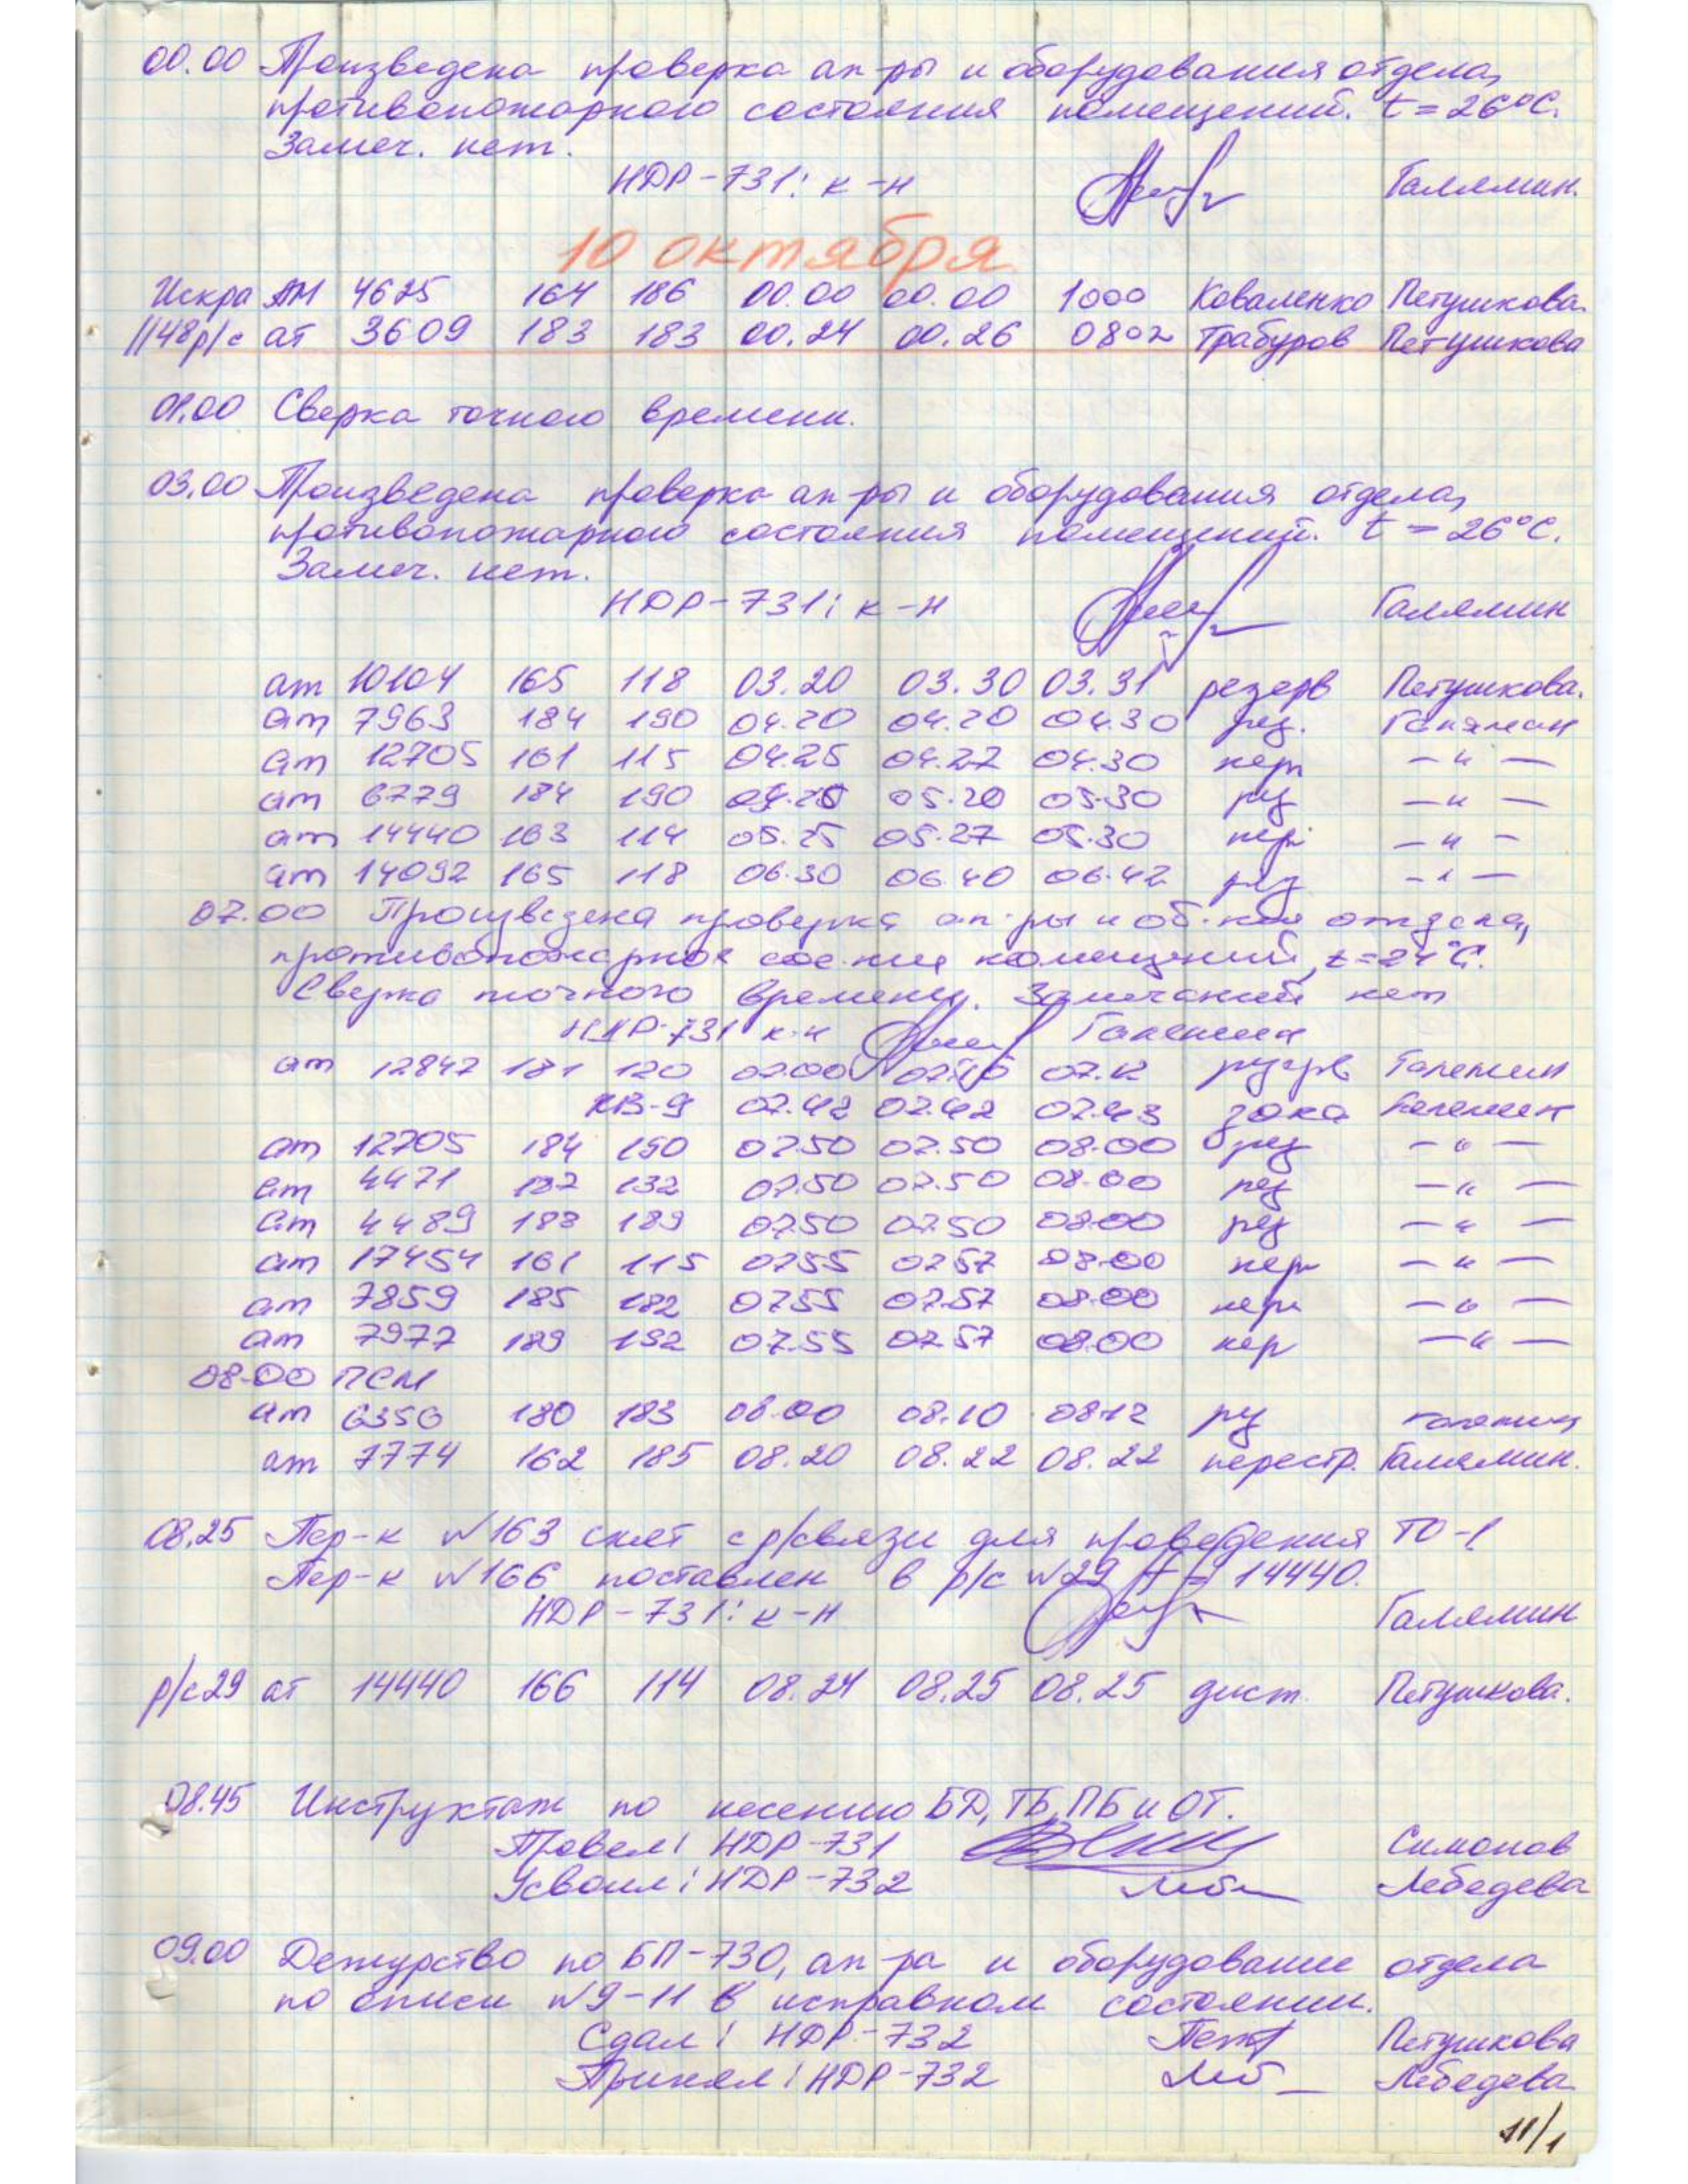 00.00 Произведена проверка ап-ры и оборудования отдела,
противопожарного состояния помещений. t = 26°С.
Замеч. нет.
НДР-731: к-н Галямин.
10 октября
Искра АМ 4625 164 186 00.00 00.00 1000 Коваленко Петушкова.
1148 р/с ат 3609 183 183 00.24 00.26 0802 Трабуров Петушкова
01.00 Сверка точного времени.
03.00 Произведена проверка ап-ры и оборудования отдела,
противопожарного состояния помещений. t = 26°С.
Замеч. нет.
НДР-731: к-н Галямин
ат 10104 165 118 03.20 03.30 03.31 резерв Петушкова.
ат 7963 184 190 04.20 04.20 04.30 рез. Галямин
ат 12705 161 115 04.25 04.27 04.30 пер — " —
ат 6779 184 190 05.20 05.30 рез — " —
ат 14440 163 114 05.25 05.27 05.30 пер — " —
ат 14092 165 118 06.30 06.40 06.42 рез — " —
07.00 Произведена проверка ап-ры и об-ния отдела,
противопожарное сос-ние помещений, t = 24°С.
Сверка точного времени. Замечаний нет
НДР-731 к-н Галямин
ат 12847 181 120 07.00 07.12 резерв Галямин
КВ-9 07.42 07.42 07.43 Галямин
ат 12705 184 190 07.50 07.50 08.00 рез — " —
ат 4471 132 07.50 07.50 08.00 рез — " —
ат 4489 183 189 07.50 07.50 08.00 рез — " —
ат 17454 161 115 07.55 07.57 08.00 пер — " —
ат 7859 185 182 07.55 07.57 08.00 пер — " —
ат 7977 189 192 07.55 07.57 08.00 пер — " —
08.00 ПСМ
ат 6356 180 183 08.00 08.10 08.12 рез Галямин
ат 7774 162 185 08.20 08.22 08.22 перестр. Галямин.
08.25 Пер-к №163 снят с р/связи для проведения ТО-1
Пер-к №166 поставлен в р/с №29 f = 14440.
НДР-731: к-н Галямин
р/с 29 ат 14440 166 114 08.24 08.25 08.25 дист. Петушкова.
08.45 Инструктаж по несению БД, ТБ, ПБ и ОТ.
Провел: НДР-731 Симонов
Усвоил: НДР-732 Лебедева
09.00 Дежурство по БП-730, ап-ра и оборудование отдела
по описи №9-11 в исправном состоянии.
Сдал: НДР-732 Петушкова
Принял: НДР-732 Лебедева
11/1